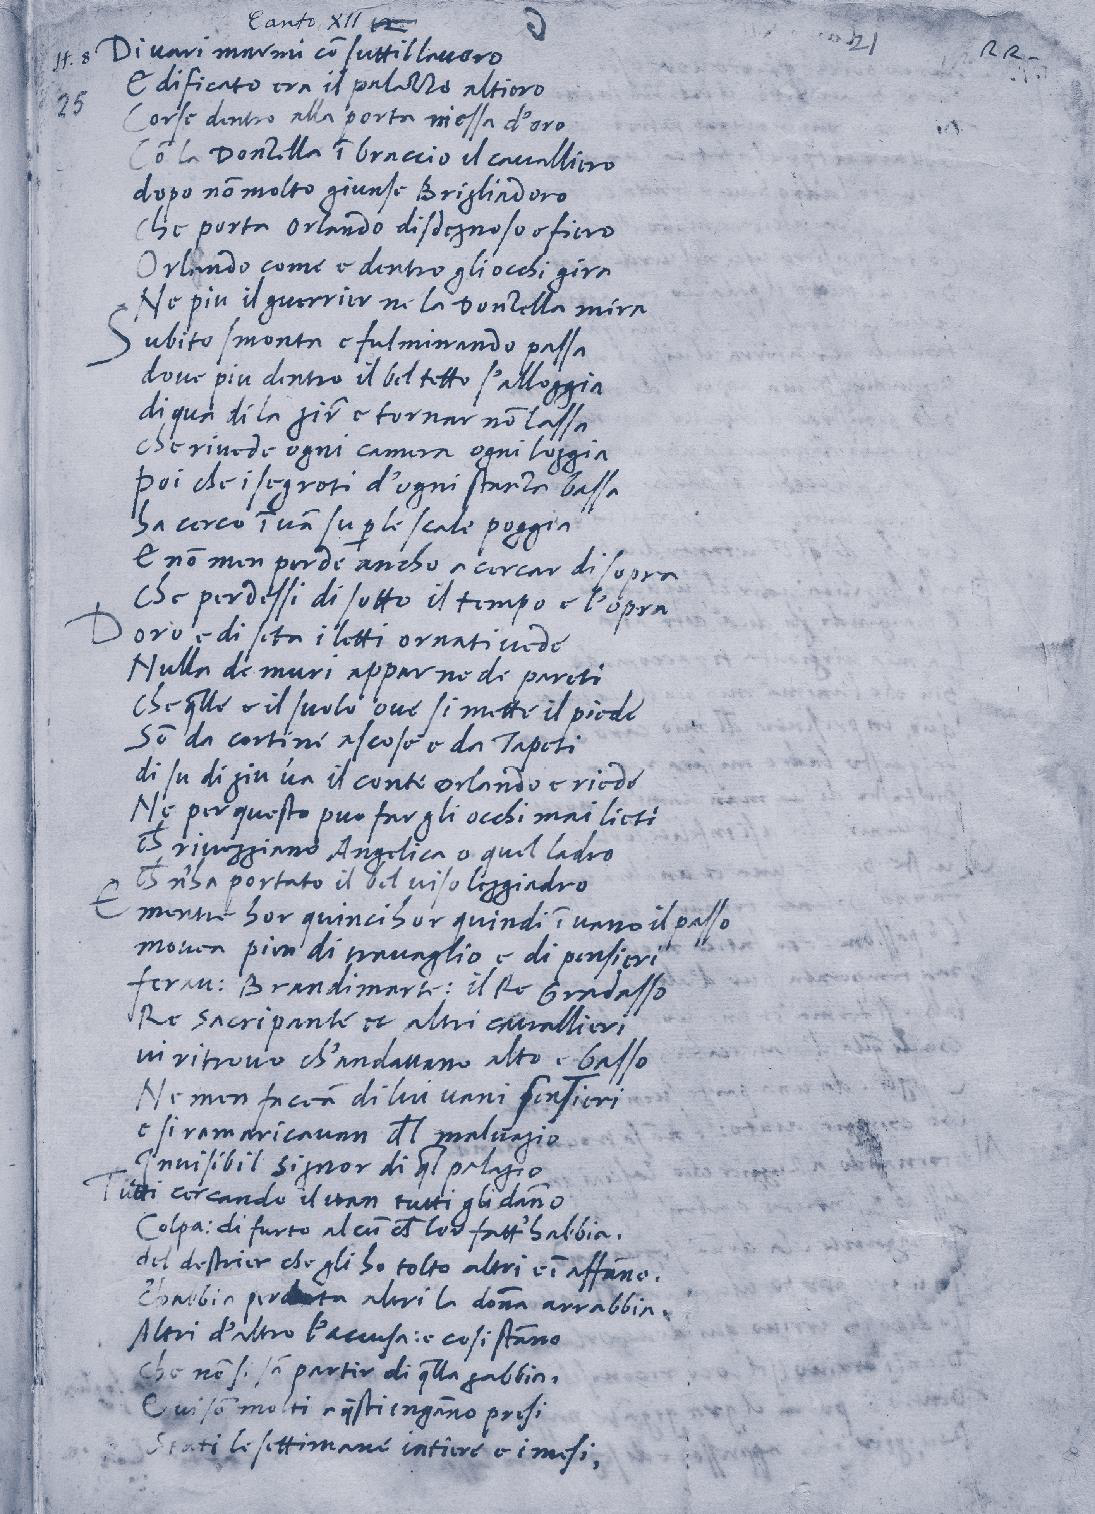 Canto XII
st. 8 Di uari marmi cō suttil lauoro
25 Edificato era il palazzo altiero
Corse dentro alla porta messa d'oro
Cō la Donzella ī braccio il caualliero
dopo nō molto giunse Brigliadoro
Che porta Orlando disdegnoso e fiero
Orlando come e dentro gli occhi gira
Ne piu il guerrier ne la Donzella mira
Subito smonta e fulminando passa
doue piu dentro il bel tetto s'alloggia
di qua di la gir e tornar nō lassa
che riuede ogni camera ogni loggia
Poi che i segreti d'ogni stanza bassa
ha cerco ī uā su ꝑ le scale poggia
E nō men perde ancho a cercar di sopra
Che perdessi di sotto il tempo e l'opra
Doro e di seta i letti ornati uede
Nulla de muri appar ne de pareti
che q̄lle e il suolo oue si mette il piede
Sō da cortine ascose e da Tapeti
di su di giu ua il conte Orlando e riede
Ne per questo puo far gli occhi mai lieti
ch riueggiano Angelica o quel ladro
ch n'ha portato il bel uiso leggiadro
E mentre hor quinci hor quindi ī uano il passo
mouea pien di trauaglio e di pensieri
ferau: Brandimarte: il Re Gradasso
Re Sacripante et altri cauallieri
ui ritrouo ch'andauano alto e basso
Ne men faceā di lui uani sentieri
e si ramaricauan dl maluagio
Inuisibil Signor di ql palagio
Tutti cercando il uan tutti gli dāno
Colpa: di furto alcū ch lor fatt'habbia.
del destrier che gli ha tolto altri e ī affāno.
Ch'habbia perduta altri la dōna arrabbia.
Altri d'altro l'accusa: e cosi stāno
che nō si sā partir di q̄lla gabbia.
E ui sō molti a q̄sti engāno presi
Stati le settimane intiere e i mesi,